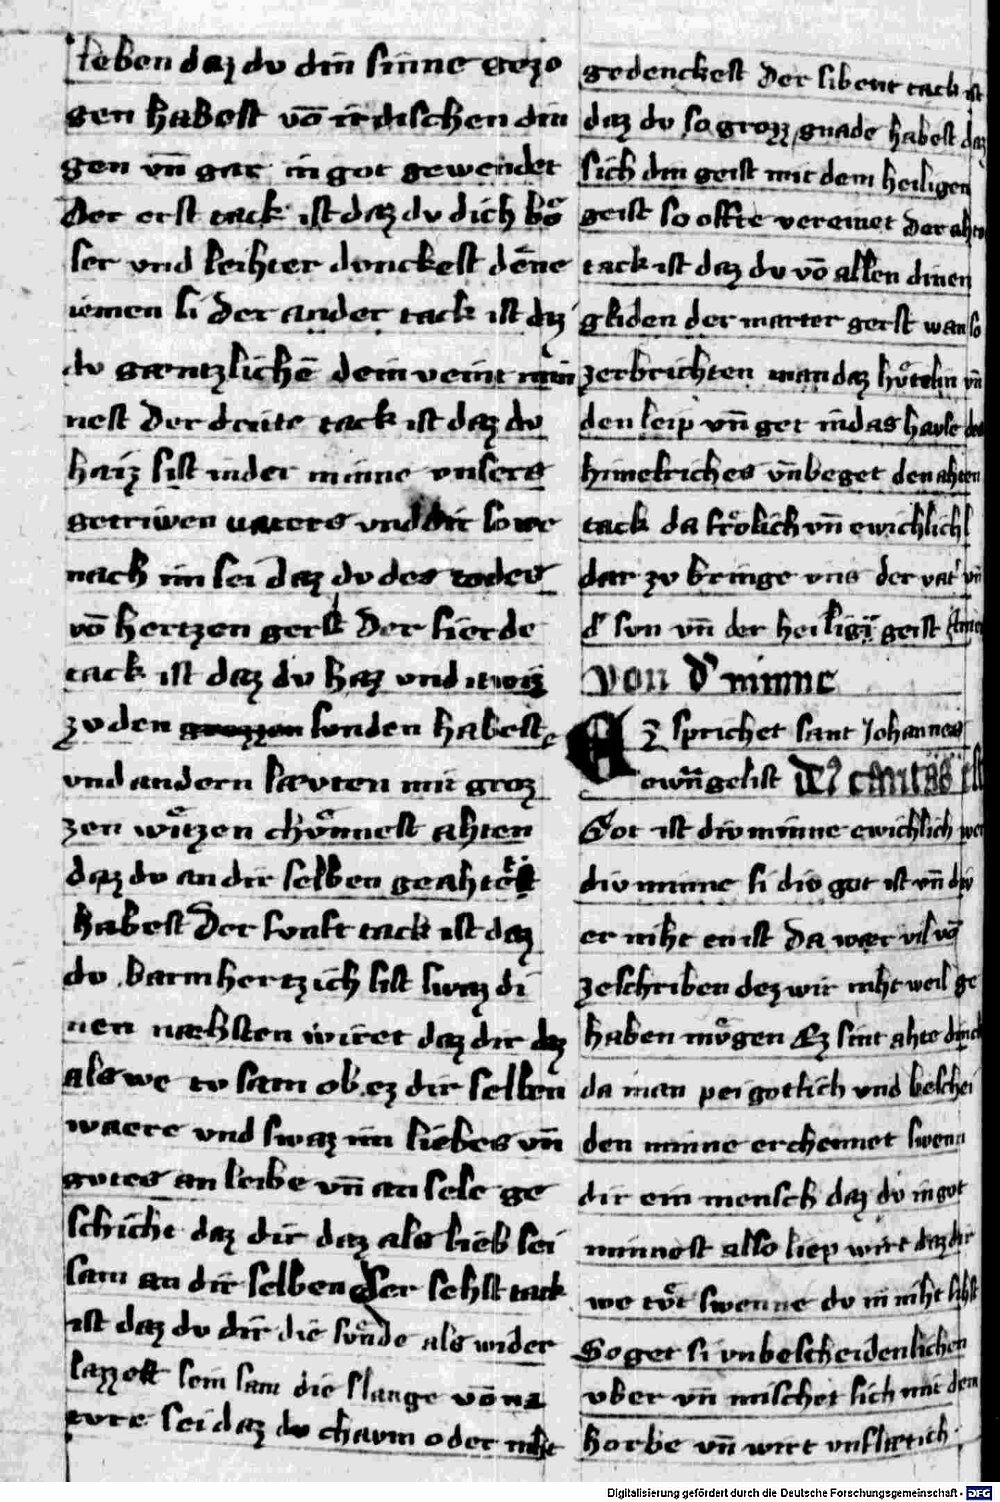 leben daz du din sinne gezo
gen habest vō irdischen din
gen vn̄ gar in got gewendet
Der erst tack ist daz du dich bͦo
ser vnd leihter dunckest dēne
iemen si Der ander tack ist daz
du gæntzlichē dein veint min
nest Der dritte tack ist daz du
haiz sist in der minne vnsers
getriwen vaters vnd dir so we
nach im sei daz du des todes
vō hertzen gerst Der fierde
tack ist daz du haz vnd itwiz
zv den grozzen sunden habest
vnd andern lævten mit groz
zen witzen chvnnest ahten
daz du an dir selben geahtet
habest Der funft tack ist daz
du barmhertzich sist swaz di
nen næhsten wiret daz dir daz
als we tv sam ob ez dir selben
waere vnd swaz im liebes vn̄
gutes an leibe vn̄ an sele ge
schicht daz dir daz als lieb sei
sam an dir selben Der sehst tack
ist daz du dir die svnde als wider
lazzest sein sam die slange vō na
ture sei daz du chaum oder niht
gedenckest Der sibent tack ist
daz du so groz gnade habest daz
sich din geist mit dem heiligen
geist so offte vereinet Der aht
tack ist daz du vō allen dinen
gliden der marter gerst wan so
zerbrichten man daz hvtelin vn̄
den leip vn̄ get in das hause des
himelriches vn̄ beget den ahten
tack da frölich vn̄ ewichlich
dar zv bringe vns der vat' vn̄
d' sun vn̄ der heilig geist Amen
Von d' minne
Ez sprichet sant Johannes
ewn̄gelist De9 caritas est
Got ist div minne ewichlich wer
div minne si div got ist vn̄ div
er niht en ist Da wær vil vō
zeschriben dez wir niht weil ge
haben mvgen Ez sint ahte dinck
da man pei gotlich vnd beschei
den minne erchennet swenn
dir ein mensch daz du in got
minnest also liep wirt daz dir
we tvt swenne du in niht sihst
So get si vnbescheidenlichen
vber vn̄ mischet sich mit dem
horbe vn̄ wirt vnflætich
Digitalisierung gefördert durch die Deutsche Forschungsgemeinschaft - DFG